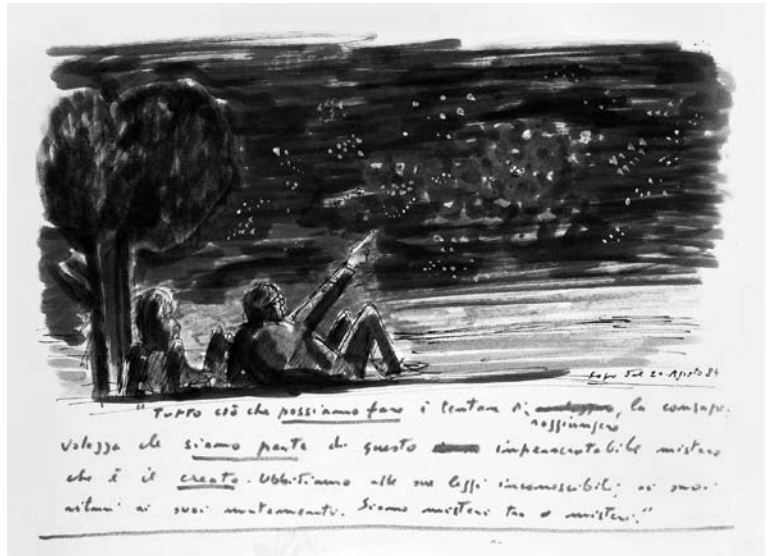 20 Agosto 84
"Tutto ciò che possiamo fare è tentare di raggiungere, la consape-
volezza che siamo parte di questo impenetrabile mistero
che è il creato. Ubbidiamo alle sue leggi inconoscibili, ai suoi
ritmi ai suoi mutamenti. Siamo misteri tra misteri."